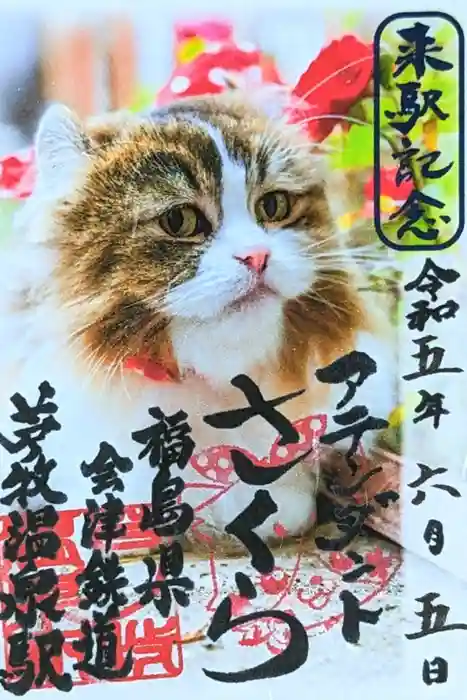 来駅記念
令和五年六月五日
アテンダント
さくら
福島県
会津鉄道
芦牧温泉駅